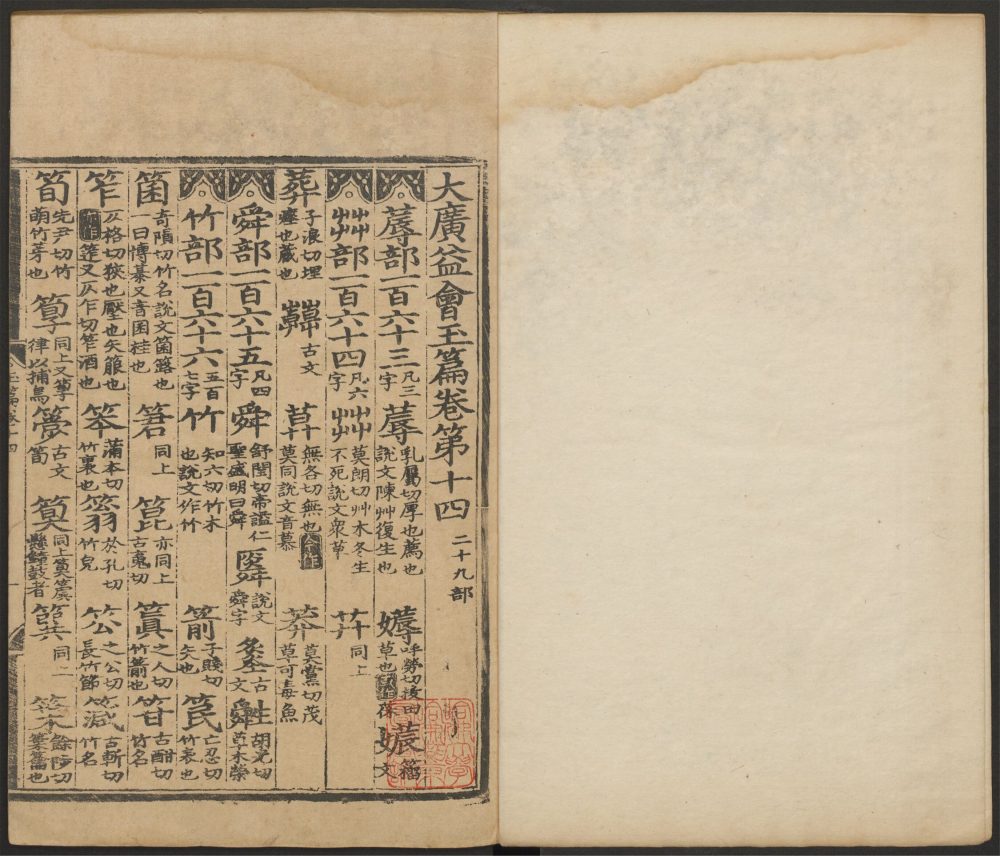 大廣益會玉篇卷第十四 二十九部
蓐部一百六十三 凡三字 蓐 乳屬切厚也薦也說文陳艸復生也 薅 呼勞切拔田草也 籀文
艸艸部一百六十四 凡六字 艸艸 莫朗切艸木冬生不死說文眾草 茻 同上
葬 子浪切埋瘞也藏也 古文 莫 無各切無也 莫同說文音慕 莽 莫黨切茂草可毒魚
舜部一百六十五 凡四字 舜 舒閏切帝謚仁聖盛明曰舜 䑞 說文舜字 古文 䑞 胡光切草木榮
竹部一百六十六 五百七字 竹 知六切竹木也說文作竹 箭 子賤切矢也 笢 亡忍切竹表也
箘 奇隕切竹名說文箘簬也一曰博棊又音囷桂也 箬 同上 箟 亦同上古䰟切 籈 之人切竹箭也 苷 古酣切竹名
笮 仄格切狹也壓也矢箙也 筰又仄乍切笮酒也 笨 蒲本切竹裏也 篛 於孔切竹皃 箜 之公切長竹節 篊 古斬切竹名
筍 先尹切竹萌竹芽也 䇹 同上又䇹律以捕鳥 古文筍 簨 同上簨簴懸鍾鼓者 同上 餘防切
玉篇卷十四